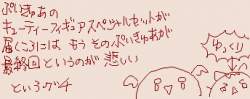 ぷいきゅあの
キューティーフィギュアスペシャルセットが
届くころには もう そのぷいきゅあが
最終回 というのが 悲しい
というグチ
ゆっくり